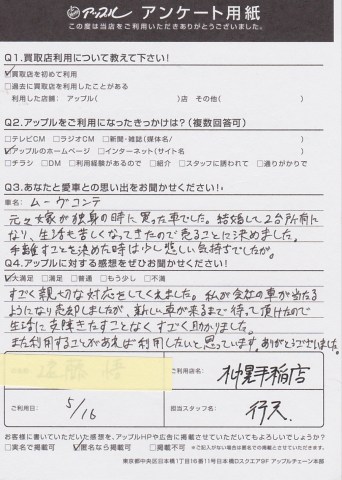 アップル アンケート用紙
この度は当店をご利用いただきありがとうございました。
Q1.買取店利用について教えて下さい!
☑買取店を初めて利用
□過去に買取店を利用したことがある
利用した店舗: アップル( )店 その他( )
Q2.アップルをご利用になったきっかけは?(複数回答可)
□テレビCM □ラジオCM □新聞・雑誌(媒体名/ )
☑アップルのホームページ □インターネット(サイト名 )
□チラシ □DM □利用経験があるので □紹介 □スタッフに誘われて □通りがかりで
Q3.あなたと愛車との思い出をお聞かせください!
車名: ムーヴコンテ
元々嫁が独身の時に買った車でした。結婚して2台所有に
なり、生活も苦しくなってきたので売ることに決めました。
手離すことを決めた時は少し悲しい気持ちでしたが。
Q4.アップルに対する感想をぜひお聞かせください!
☑大満足 □満足 □普通 □もう少し □不満
すごく親切な対応をしてくれました。私が会社の車が当たる
ようになり売却しましたが、新しい車が来るまで待って頂けたので
生活に支障きたすことなくすごく助かりました。
また利用することがあれば利用したいと思っています。ありがとうございました。
ご利用店名: 札幌手稲店
ご利用日: 5/16
担当スタッフ名: 行天
お客様に書いていただいた感想を、アップルHPや広告に掲載させていただいてもよろしいでしょうか?
□実名で掲載可 ☑匿名なら掲載可 □掲載不可 ※ご記入がない場合は匿名での掲載とさせていただきます。
東京都中央区日本橋1丁目16番11号日本橋Dスクエア9F アップルチェーン本部